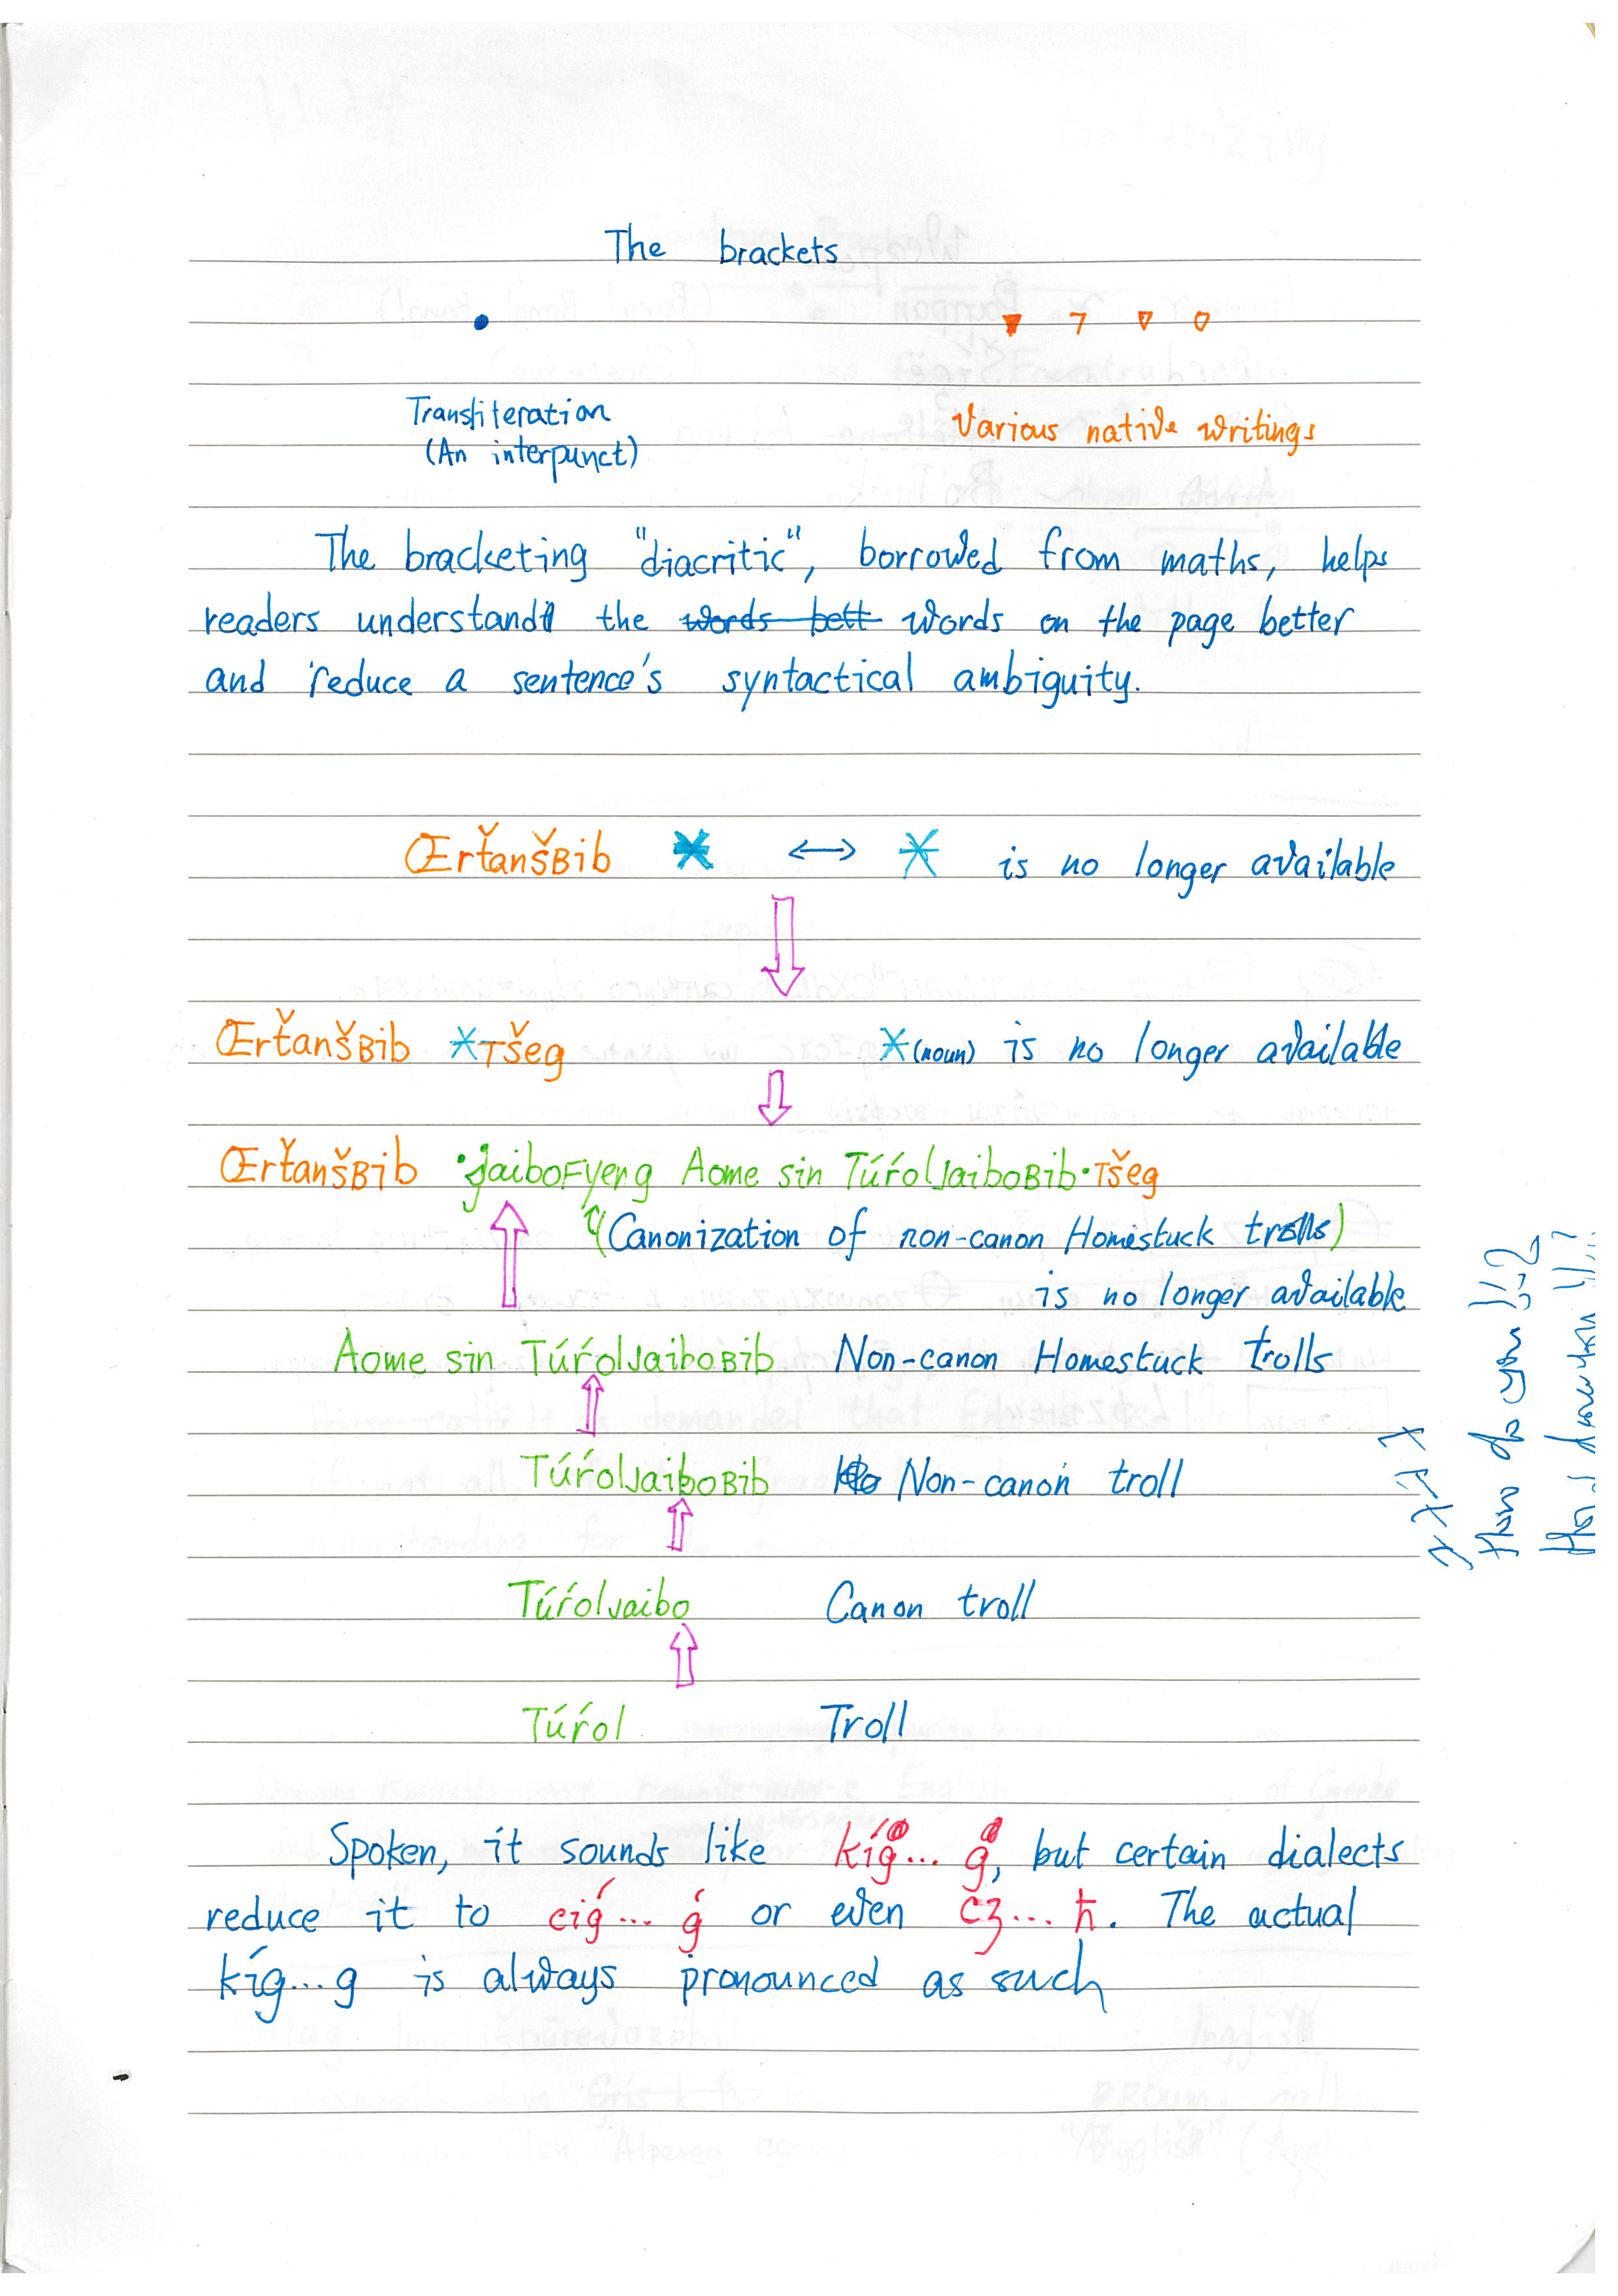 The brackets
Transliteration
(An interpunct)
Various native writings
The bracketing "diacritic", borrowed from maths, helps
readers understand the words bett words on the page better
and reduce a sentence's syntactical ambiguity.
ŒrťanŠBib * ↔ * is no longer available
ŒrťanŠBib *TŠeg *(noun) is no longer available
ŒrťanŠBib ·JaiboFyeng Aome sin TúŕolJaiboBib·TŠeg
(Canonization of non-canon Homestuck trolls)
is no longer available
Aome sin TúŕolJaiboBib Non-canon Homestuck trolls
TúŕolJaiboBib Non-canon troll
TúŕolJaibo Canon troll
Túŕol Troll
Spoken, it sounds like kíg... g, but certain dialects
reduce it to eig... ǵ or even cʒ... ħ. The actual
kíg...g is always pronounced as such